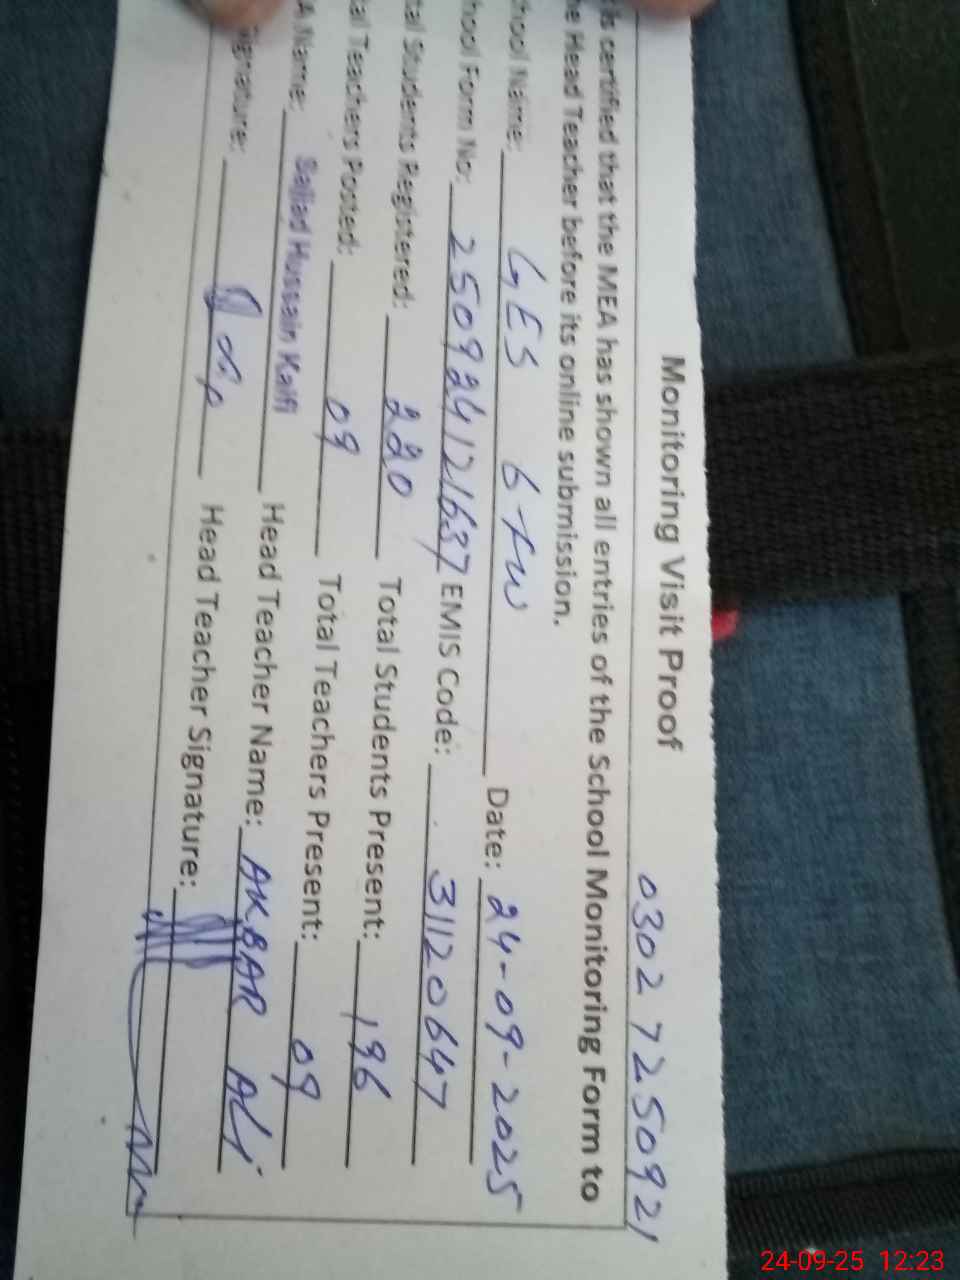 0302 7250921
Monitoring Visit Proof
is certified that the MEA has shown all entries of the School Monitoring Form to
he Head Teacher before its online submission.
hool Name: GES 6 Date: 24-09-2025
hool Form No: 250924121637 EMIS Code: 31120647
tal Students Registered: 220 Total Students Present: 196
al Teachers Posted: 09 Total Teachers Present: 09
A Name: Sajjad Hussain Kaifi Head Teacher Name: AKBAR ALi
Signature: Head Teacher Signature:
24-09-25 12:23